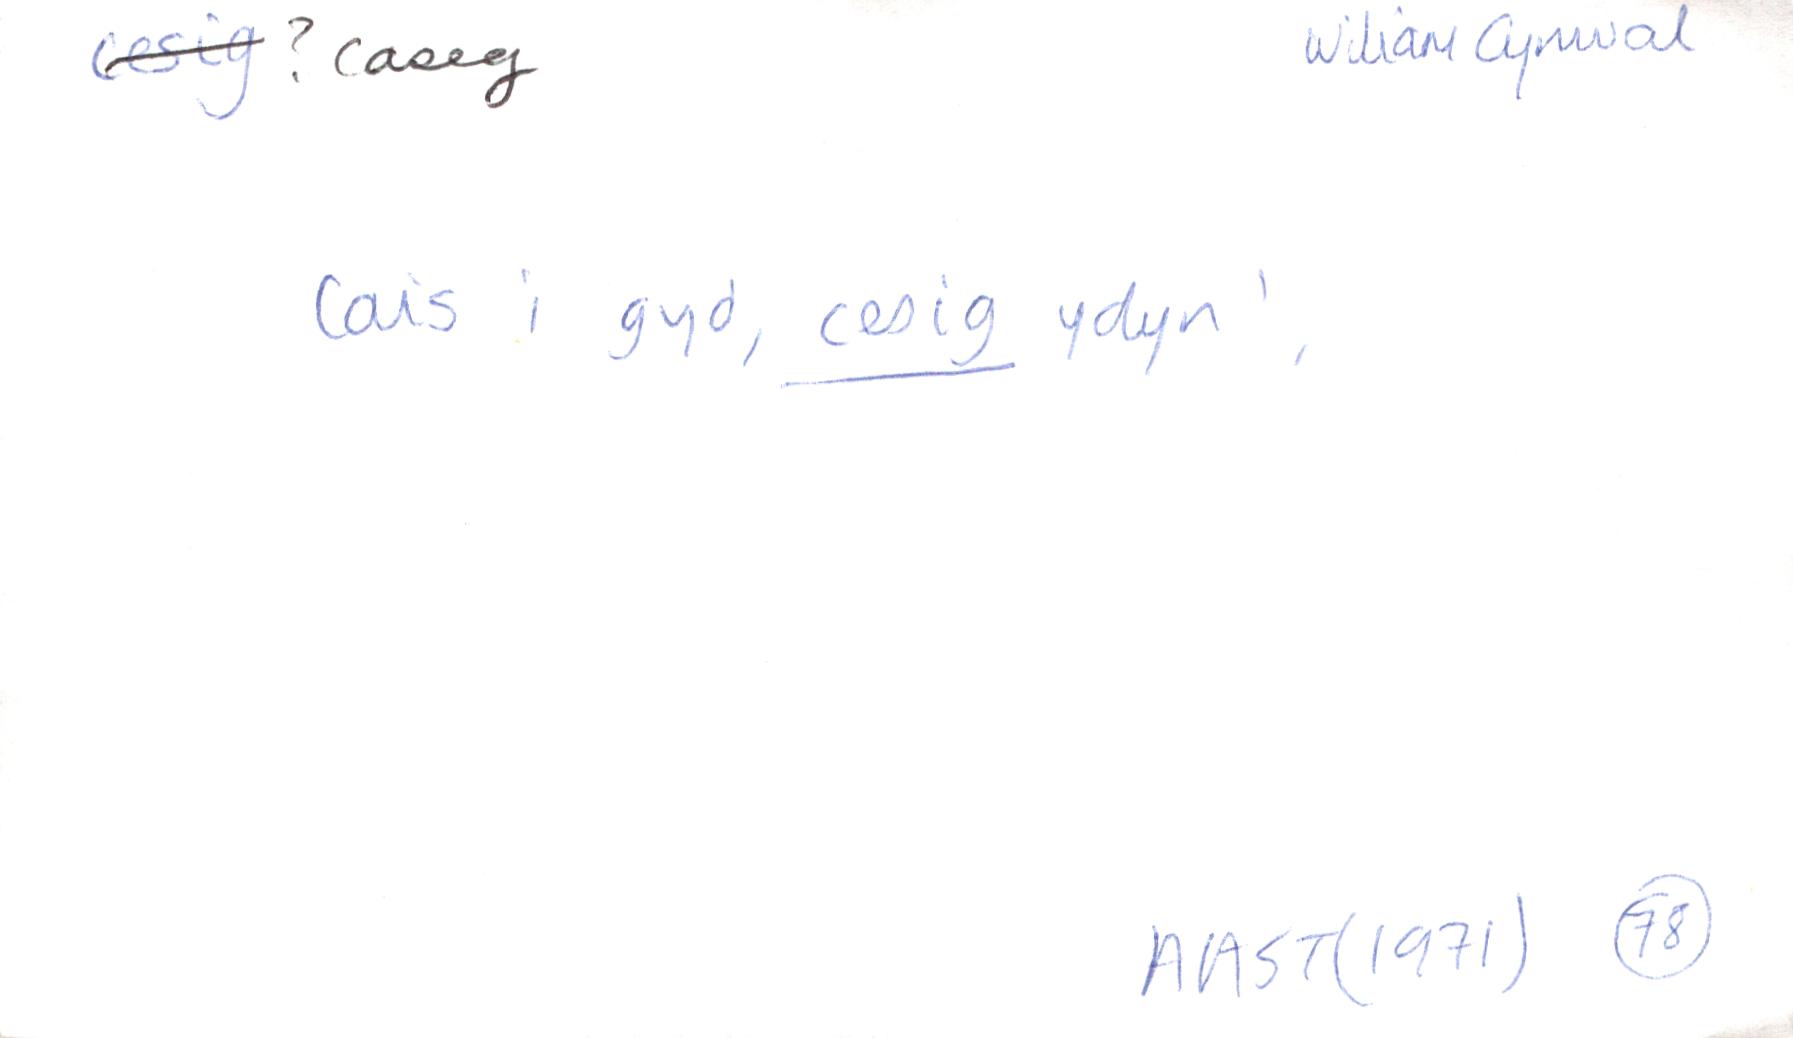 cesig ? caseg Wiliam Cynwal
Cais i gyd, cesig ydyn',
AAST (1971) 78